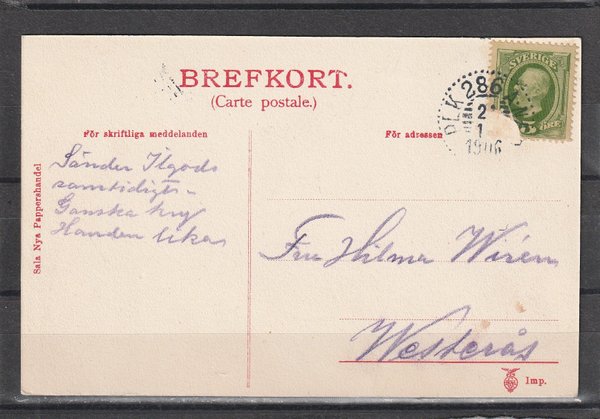 BREFKORT.
(Carte postale.)
SVERIGE
ÖRE
PLK 286
2
1
1906
För skriftliga meddelanden
För adressen
Sänder Ilgods
samtidigt -
Ganska kry
Handen likas
Fru Hilma Wirén
Westerås
Sala Nya Pappershandel
Imp.